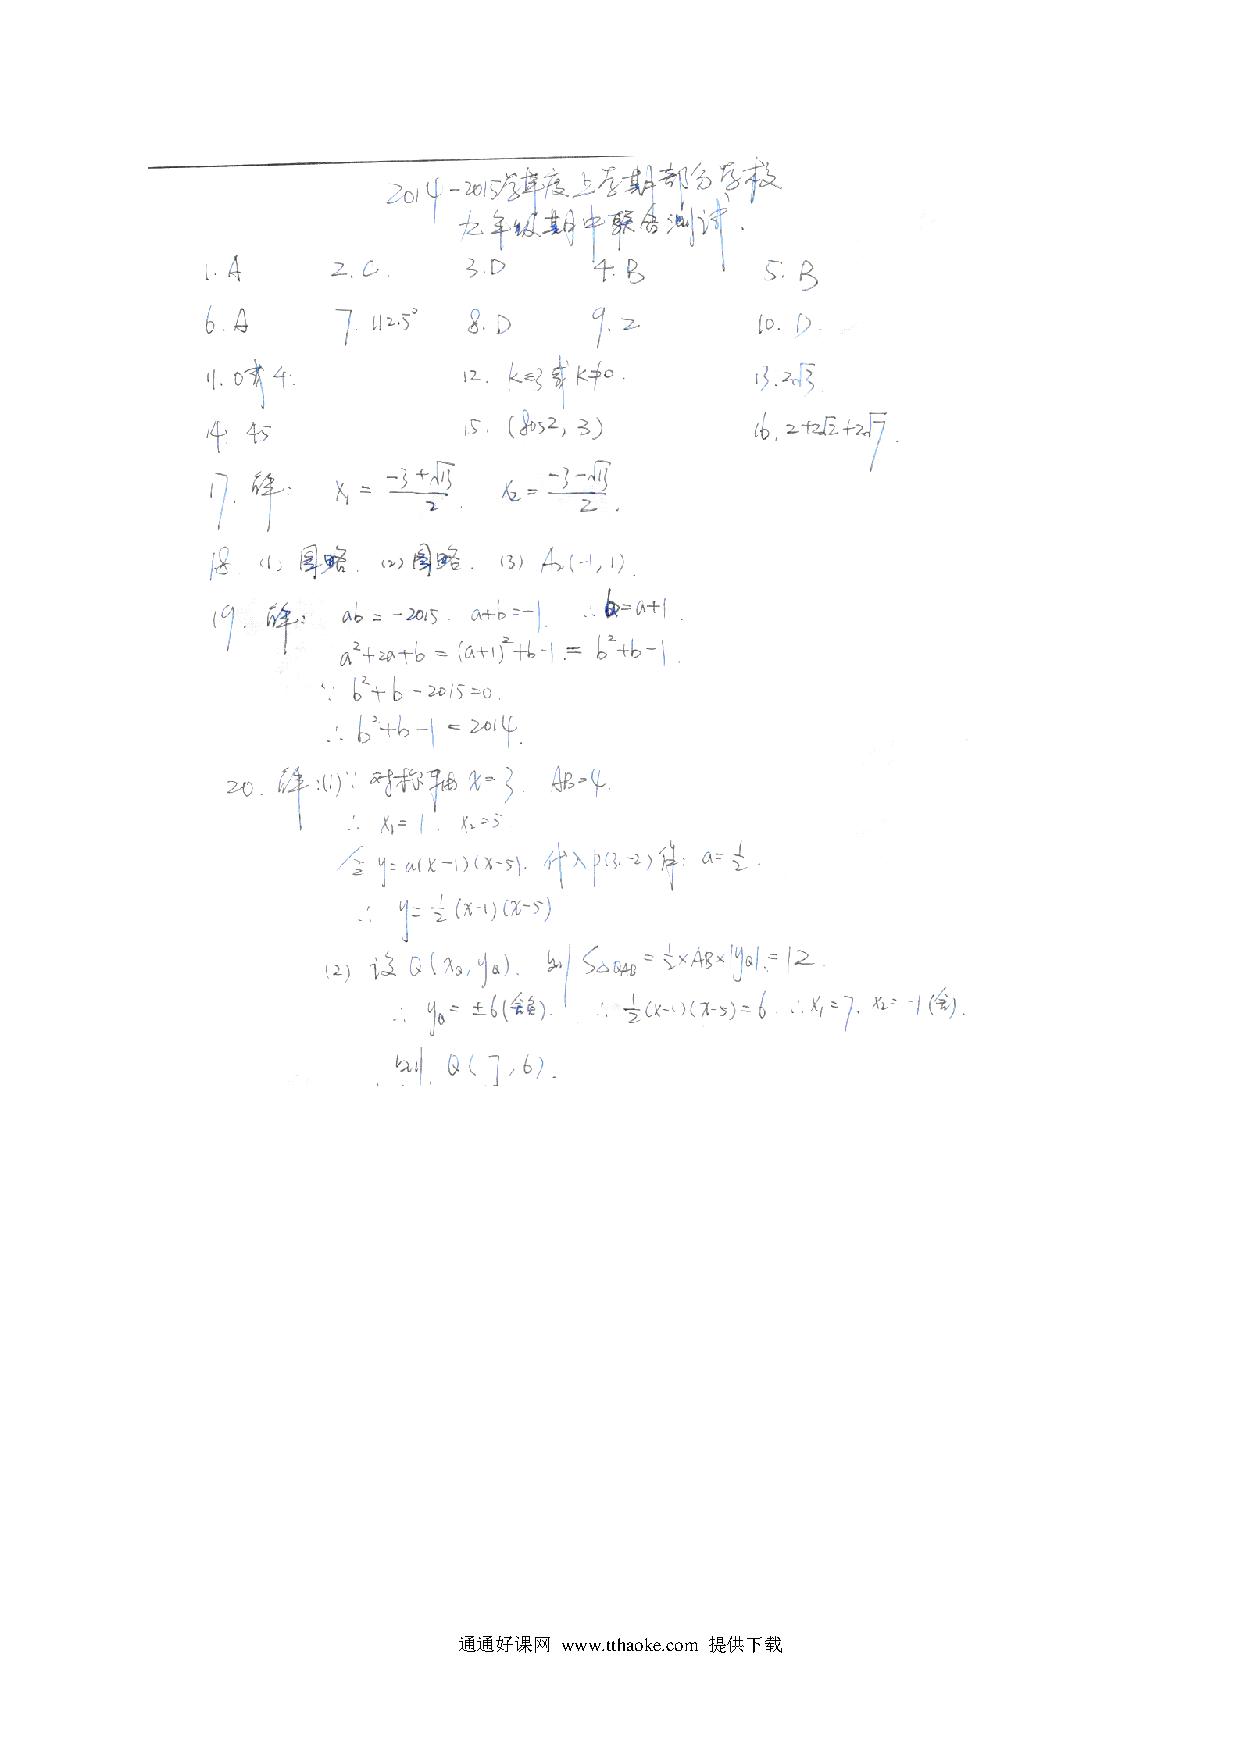 2014-2015学年度上学期部分学校
九年级期中联合测试.
1. A 2. C. 3. D 4. B 5. B
6. A 7. 112.5° 8. D 9. 2 10. D.
11. 0或4. 12. k≤3或k≠0. 13. 2√3.
14. 45 15. (8052, 3) 16. 2+2√2+2√7.
17. 解: x₁ = (-3+√13)/2. x₂ = (-3-√13)/2.
18. (1) 图略. (2) 图略. (3) A₂(-1, 1).
19. 解: ab = -2015. a+b=-1. ∴ b=a+1.
a²+2a+b = (a+1)²+b-1 = b²+b-1.
∵ b²+b-2015=0.
∴ b²+b-1 = 2014.
20. 解:(1)∵ 对称轴 x=3. AB=4.
∴ x₁=1. x₂=5
令 y=a(x-1)(x-5). 代入P(3,-2)得: a=½.
∴ y=½(x-1)(x-5)
(2) 设 Q(x_Q, y_Q). 则 S△QAB = ½×AB×|y_Q| = 12.
∴ y_Q = ±6(舍负). ∴ ½(x-1)(x-5)=6. ∴ x₁=7, x₂=-1(舍).
则 Q(7, 6).
通通好课网 www.tthaoke.com 提供下载